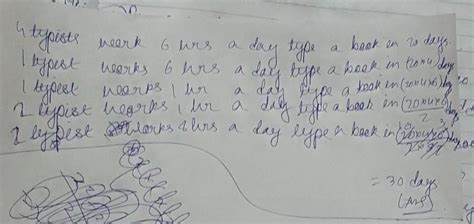 4 typists work 6 hrs a day type a book in 20 days.
1 typist works 6 hrs a day type a book in (20×4) day
1 typist works 1 hr a day type a book in (20×4×6)
2 typist works 1 hr a day type a book in (20×4×6)
2
2 typist works hrs a day type a book in (20×4×6)
= 30 days
(Ans)